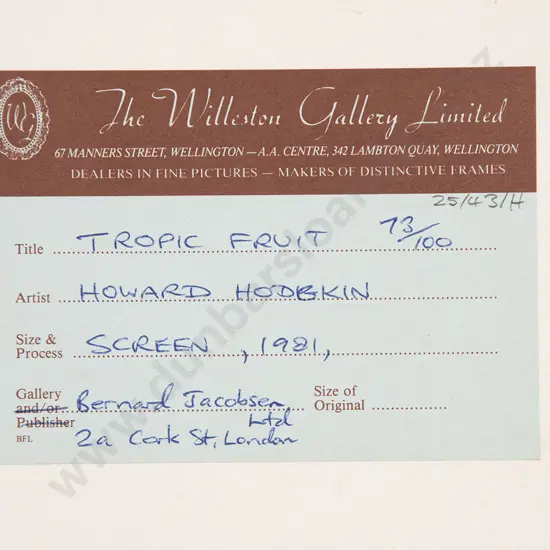 WG
The Willeston Gallery Limited
67 MANNERS STREET, WELLINGTON — A.A. CENTRE, 342 LAMBTON QUAY, WELLINGTON
DEALERS IN FINE PICTURES — MAKERS OF DISTINCTIVE FRAMES
25/43/H
Title TROPIC FRUIT 73/100
Artist HOWARD HODGKIN
Size & Process SCREEN, 1981,
Gallery and/or Publisher Bernard Jacobsen Ltd
BFL 2a Cork St, London
Size of Original